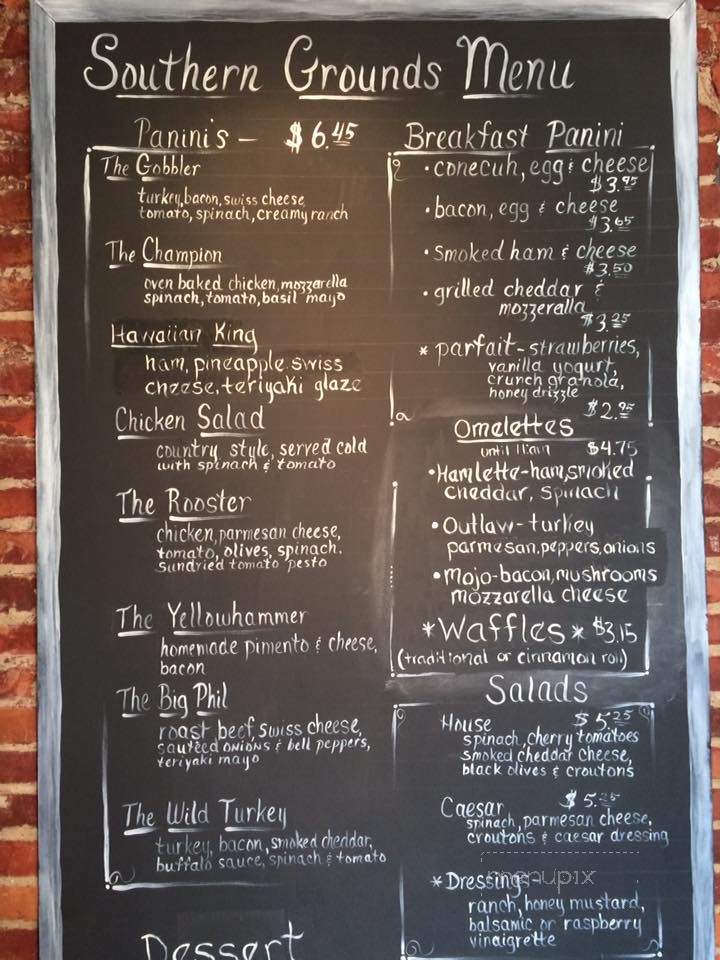 Southern Grounds Menu
Panini's — $6.45
The Gobbler
turkey, bacon, swiss cheese
tomato, spinach, creamy ranch
The Champion
oven baked chicken, mozzarella
spinach, tomato, basil mayo
Hawaiian King
ham, pineapple swiss
cheese, teriyaki glaze
Chicken Salad
country style, served cold
with spinach & tomato
The Rooster
chicken, parmesan cheese,
tomato, olives, spinach.
sundried tomato pesto
The Yellowhammer
homemade pimento & cheese,
bacon
The Big Phil
roast beef, swiss cheese,
sautéed onions & bell peppers,
teriyaki mayo
The Wild Turkey
turkey, bacon, smoked cheddar,
buffalo sauce, spinach & tomato
Dessert
Breakfast Panini
• conecuh, egg & cheese
$3.95
• bacon, egg & cheese
$3.65
• smoked ham & cheese
$3.50
• grilled cheddar &
mozzeralla
$3.25
* parfait - strawberries,
vanilla yogurt,
crunch granola,
honey drizzle
$2.95
Omelettes
until 11am $4.75
• Hamlette - ham, smoked
cheddar, spinach
• Outlaw - turkey
parmesan, peppers, onions
• Mojo - bacon, mushrooms
mozzarella cheese
* Waffles * $3.15
(traditional or cinnamon roll)
Salads
House $5.25
spinach, cherry tomatoes
smoked cheddar cheese,
black olives & croutons
Caesar $5.25
spinach, parmesan cheese,
croutons & caesar dressing
* Dressings
menupix
ranch, honey mustard,
balsamic or raspberry
vinaigrette